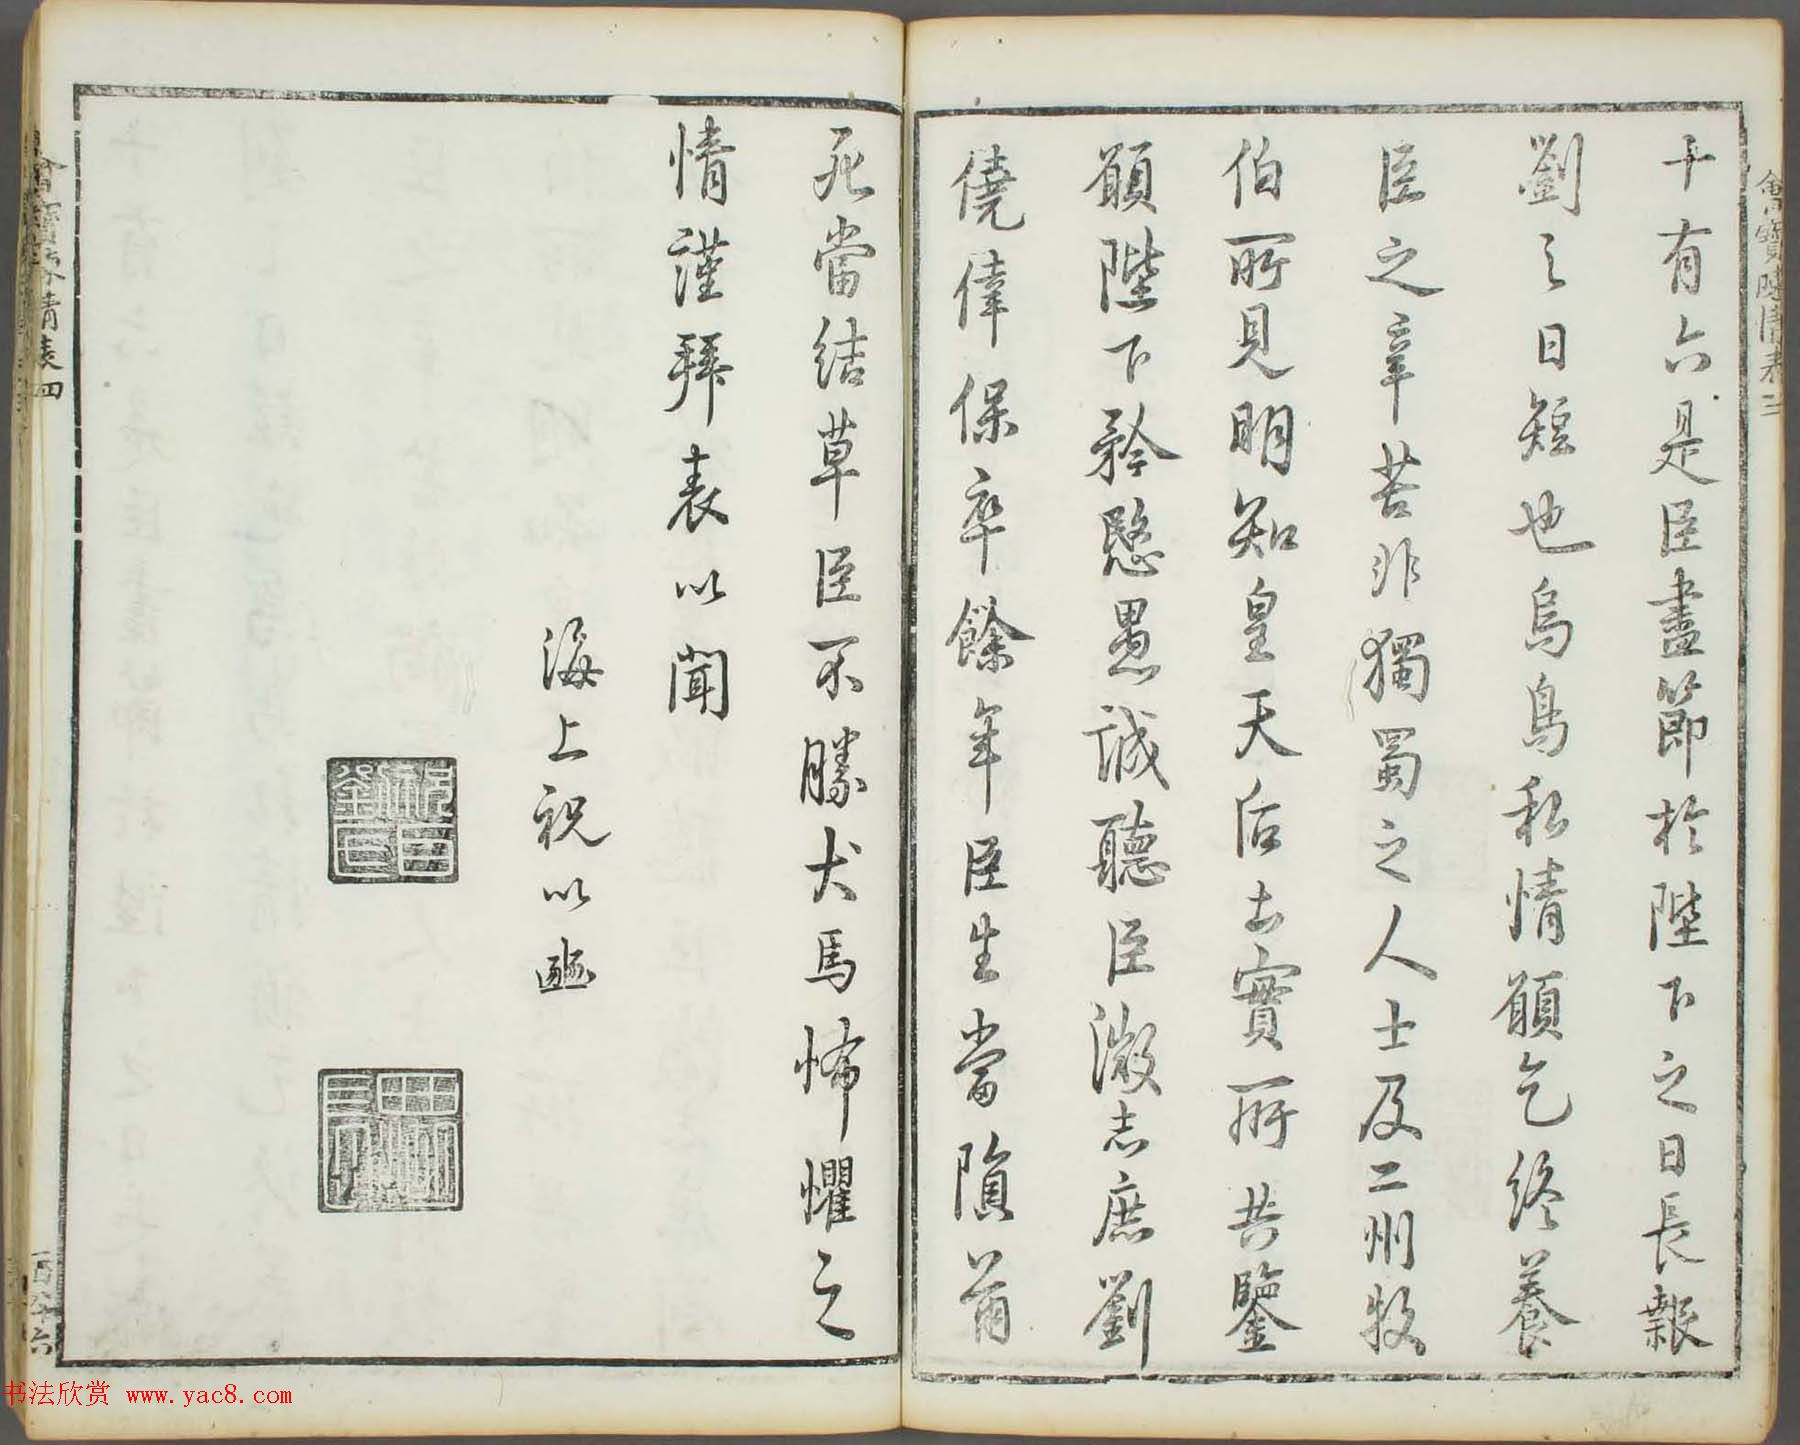 十有六是臣盡節於陛下之日長報
劉之日短也烏鳥私情願乞終養
臣之辛苦非獨蜀之人士及二州牧
伯所見明知皇天后土實所共鑒
願陛下矜愍愚誠聽臣微志庶劉
僥倖保卒餘年臣生當隕首
死當結草臣不勝犬馬怖懼之
情謹拜表以聞
海上祝以豳
書法欣赏 www.yac8.com